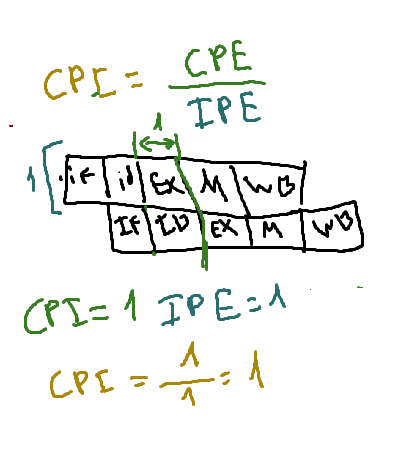 CPI = CPE / IPE
1
1 IF ID EX M WB
IF ID EX M WB
CPI = 1 IPE = 1
CPI = 1 / 1 = 1